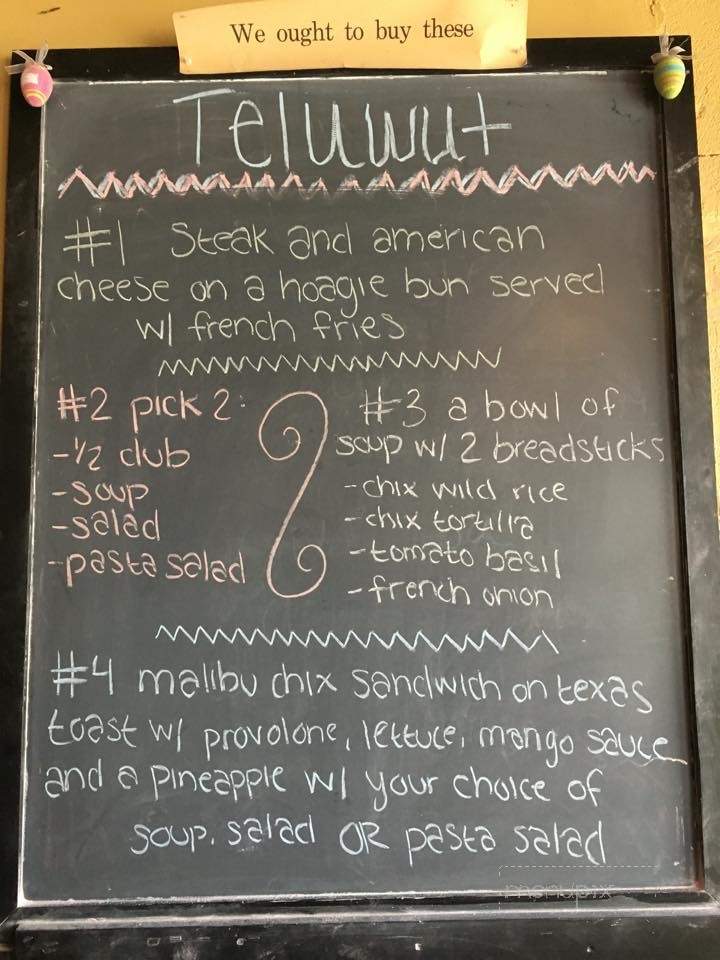 We ought to buy these
Teluwut
#1 Steak and american
cheese on a hoagie bun served
w/ french fries
#2 pick 2:
-1/2 club
-soup
-salad
-pasta salad
#3 a bowl of
soup w/ 2 breadsticks
-chix wild rice
-chix tortilla
-tomato basil
-french onion
#4 malibu chix sandwich on texas
toast w/ provolone, lettuce, mango sauce
and a pineapple w/ your choice of
soup, salad OR pasta salad
menupix